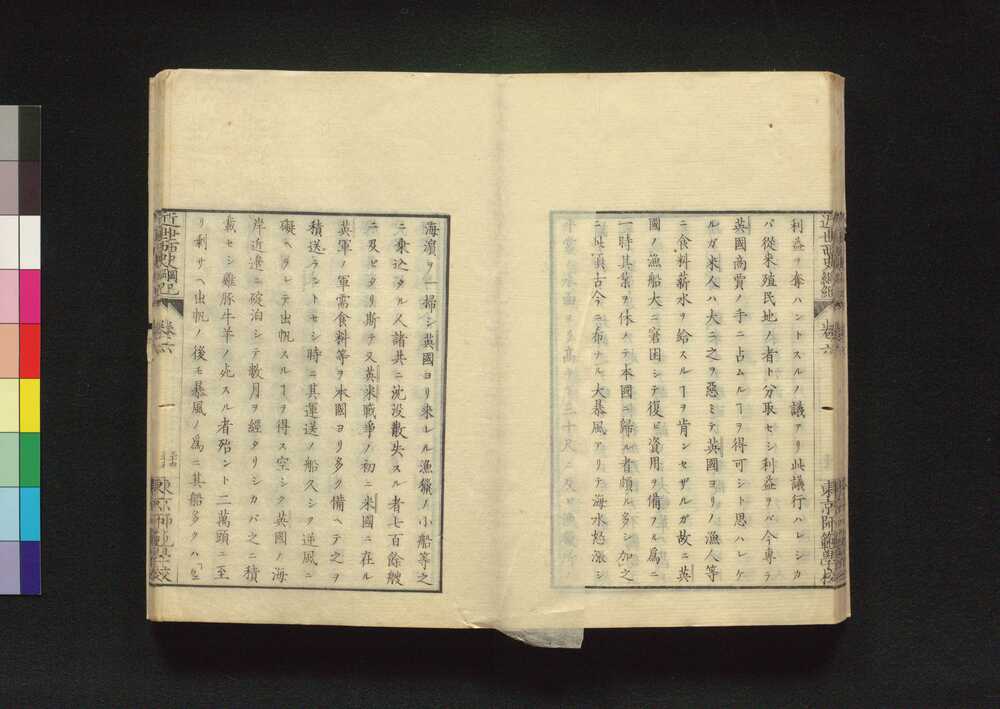 利益ヲ奪ハントスルノ議アリ此議行ハレシカ
バ從来殖民地ノ者ト分取セシ利益ヲバ今専ラ
英國商賈ノ手ニ占ムルヿヲ得可シト思ハレケ
ルガ米人ハ大ニ之ヲ惡ミテ英國ヨリノ漁人等
ニ食料薪水ヲ給スルヿヲ肯ンセザルガ故ニ英
國ノ漁船大ニ窘困シテ復ビ資用ヲ備フル爲ニ
一時其業ヲ休メテ本國ニ歸ル者頗ル多シ加之
ニ此頃古今ニ希ナル大暴風アリテ海水怒漲シ
海濵ヲ一掃シ英國ヨリ来レル漁獵ノ小船等之
ニ乗込タル人諸共ニ沈没散失スル者七百餘艘
ニ及ビタリ斯テ又英米戰争ノ初ニ米國ニ在ル
英軍ノ軍需食料等ヲ本國ヨリ多ク備ヘテ之ヲ
積送ラントセシ時ニ其運送ノ船久シク逆風ニ
礙ヘラレテ出帆スルヿヲ得ス空シク英國ノ海
岸近邊ニ碇泊シテ数月ヲ經タリシカバ之ニ積
載セシ雞豚牛羊ノ死スル者殆ント二萬頭ニ至
リ剰サヘ出帆ノ後モ暴風ノ爲ニ其船多クハ
近世西史綱紀 卷六
東京師範學校